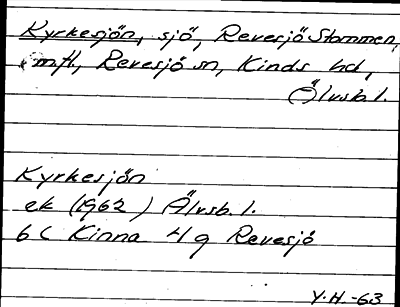 Kyrkesjön, sjö, Revesjö Stommen,
m fl., Revesjö sn, Kinds hd,
Älvsb. l.
Kyrkesjön
ek (1962) Älvsb. l.
6 C Kinna 4 g Revesjö
Y.H.-63